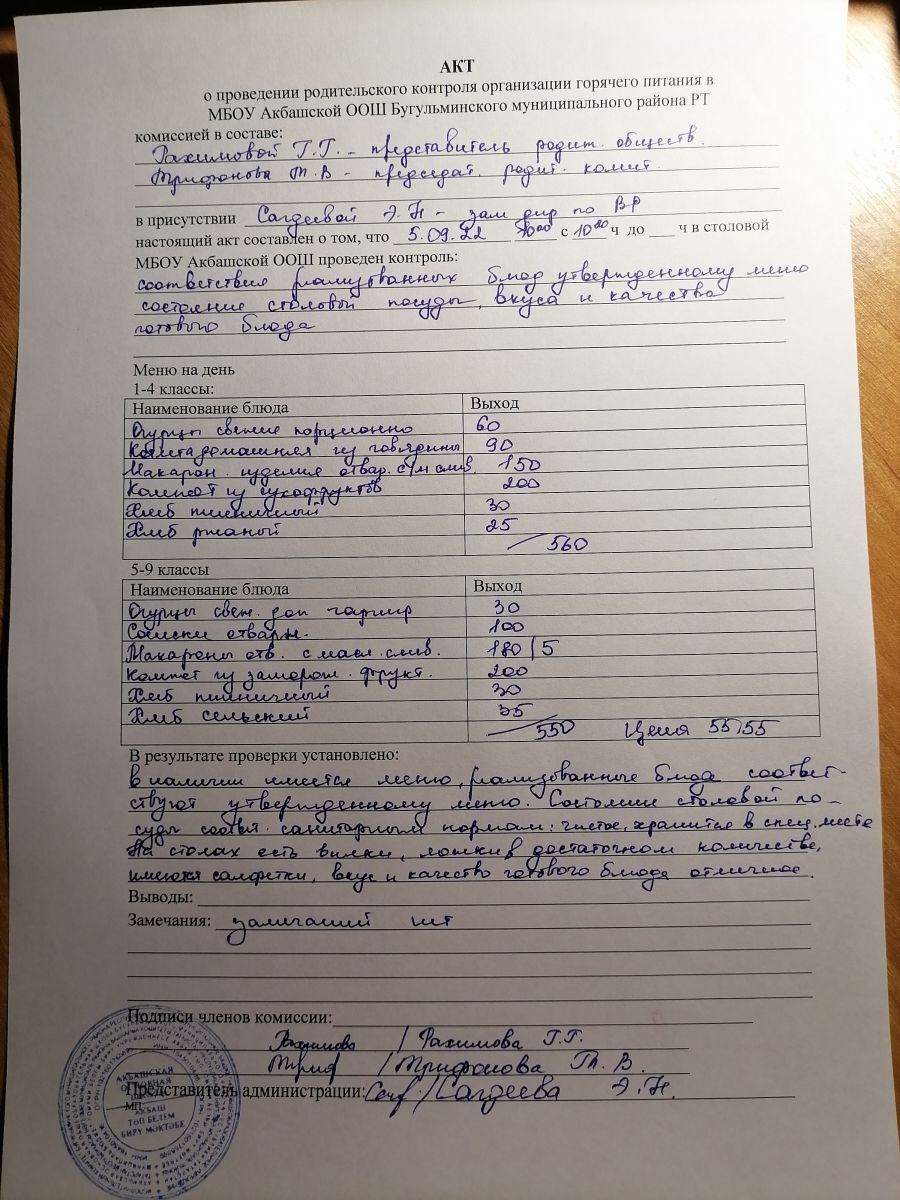 АКТ
о проведении родительского контроля организации горячего питания в
МБОУ Акбашской ООШ Бугульминского муниципального района РТ
комиссией в составе:
Рахимовой Г.Г. - представитель родит. обществ.
Трифонова Т.В - председат. родит. комит.
в присутствии Сагдеевой Э.Н - зам дир по ВР
настоящий акт составлен о том, что 5.09.22 с 10²⁰ ч до ___ ч в столовой
МБОУ Акбашской ООШ проведен контроль:
соответствия реализованных блюд утвержденному меню
состояние столовой посуды, вкуса и качества
готового блюда
Меню на день
1-4 классы:
Наименование блюда Выход
Огурцы свежие порционно 60
Котлета домашняя из говядины 90
Макарон. изделия отвар. с/м слив. 150
Компот из сухофруктов 200
Хлеб пшеничный 30
Хлеб ржаной 25
560
5-9 классы
Наименование блюда Выход
Огурцы свеж. доп гарнир 30
Сосиски отварн. 100
Макароны отв. с масл. слив. 180/5
Компот из заморож. фрукт. 200
Хлеб пшеничный 30
Хлеб сельский 35
550 Цена 55,55
В результате проверки установлено:
в наличии имеется меню, реализованные блюда соответ-
ствуют утвержденному меню. Состояние столовой по-
суды соотв. санитарным нормам: чистое, хранится в спец. месте
На столах есть вилки, ложки в достаточном количестве,
имеются салфетки, вкус и качество готового блюда отличное.
Выводы:
Замечания: замечаний нет
Подписи членов комиссии:
Рахимова / Рахимова Г.Г.
Триф / Трифонова Т.В.
Представитель администрации: / Сагдеева Э.Н.
МП
АКБАШСКАЯ
ОСНОВНАЯ
ШКОЛА
АКБАШ
ТӨП БЕЛЕМ
БИРҮ МӘКТӘБЕ